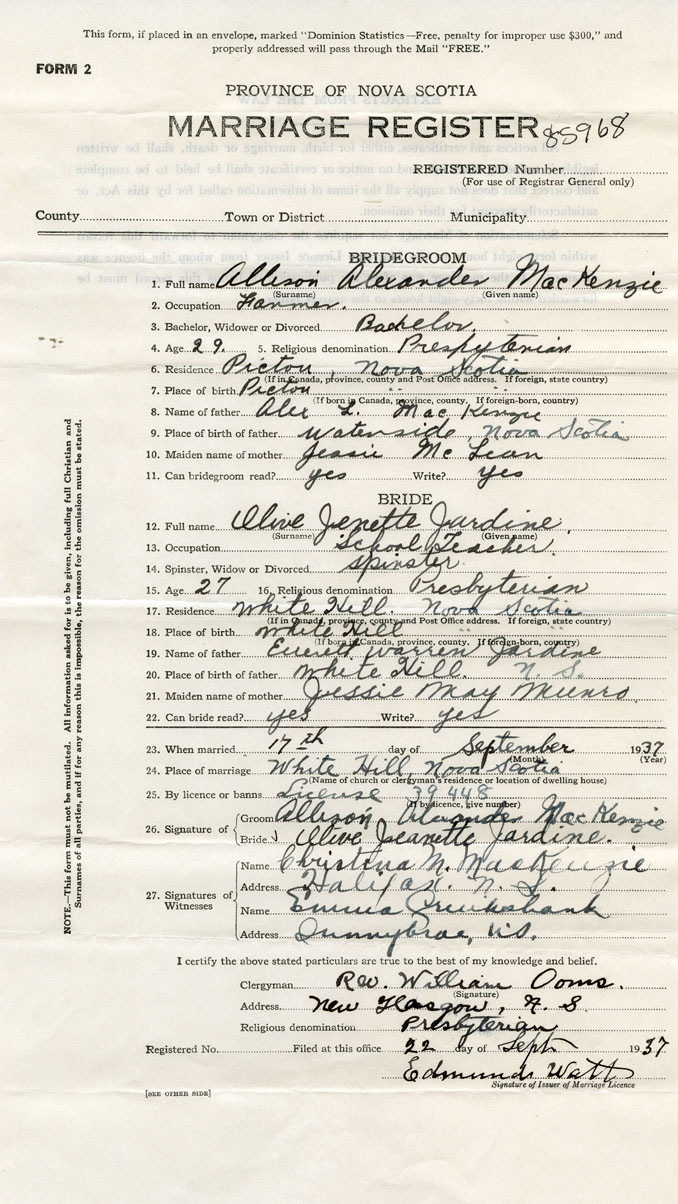 This form, if placed in an envelope, marked "Dominion Statistics—Free, penalty for improper use $300," and
properly addressed will pass through the Mail "FREE."
FORM 2
PROVINCE OF NOVA SCOTIA
MARRIAGE REGISTER 85968
REGISTERED Number
(For use of Registrar General only)
County Town or District Municipality
BRIDEGROOM
1. Full name Allison Alexander MacKenzie
(Surname) (Given name)
2. Occupation Farmer.
3. Bachelor, Widower or Divorced Bachelor.
4. Age 29. 5. Religious denomination Presbyterian
6. Residence Pictou, Nova Scotia
(If in Canada, province, county and Post Office address. If foreign, state country)
7. Place of birth Pictou " "
(If born in Canada, province, county. If foreign-born, country)
8. Name of father Alex L. MacKenzie
9. Place of birth of father Waterside, Nova Scotia
10. Maiden name of mother Jessie McLean
11. Can bridegroom read? yes Write? yes
BRIDE
12. Full name Olive Jenette Jardine.
(Surname) (Given name)
13. Occupation School Teacher.
14. Spinster, Widow or Divorced Spinster.
15. Age 27 16. Religious denomination Presbyterian
17. Residence White Hill. Nova Scotia
(If in Canada, province, county and Post Office address. If foreign, state country)
18. Place of birth White Hill " "
(If born in Canada, province, county. If foreign-born, country)
19. Name of father Everett Warren Jardine
20. Place of birth of father White Hill. N. S.
21. Maiden name of mother Jessie May Munro.
22. Can bride read? yes Write? yes
23. When married 17th day of September 1937
(Month) (Year)
24. Place of marriage White Hill, Nova Scotia
(Name of church or clergyman's residence or location of dwelling house)
25. By licence or banns License 39448
(If by licence, give number)
26. Signature of Groom Allison Alexander MacKenzie
Bride Olive Jeanette Jardine.
27. Signatures of Witnesses
Name Christina M. MacKenzie
Address Halifax. N. S.
Name Emma Cruikshank
Address Sunnybrae, N.S.
I certify the above stated particulars are true to the best of my knowledge and belief.
Clergyman Rev. William Ooms.
(Signature)
Address New Glasgow, N. S
Religious denomination Presbyterian
Registered No. Filed at this office 22 day of Sept 1937
Edmund Watt
Signature of Issuer of Marriage Licence
[SEE OTHER SIDE]
NOTE.—This form must not be mutilated. All information asked for is to be given, including full Christian and
Surnames of all parties, and if for any reason this is impossible, the reason for the omission must be stated.